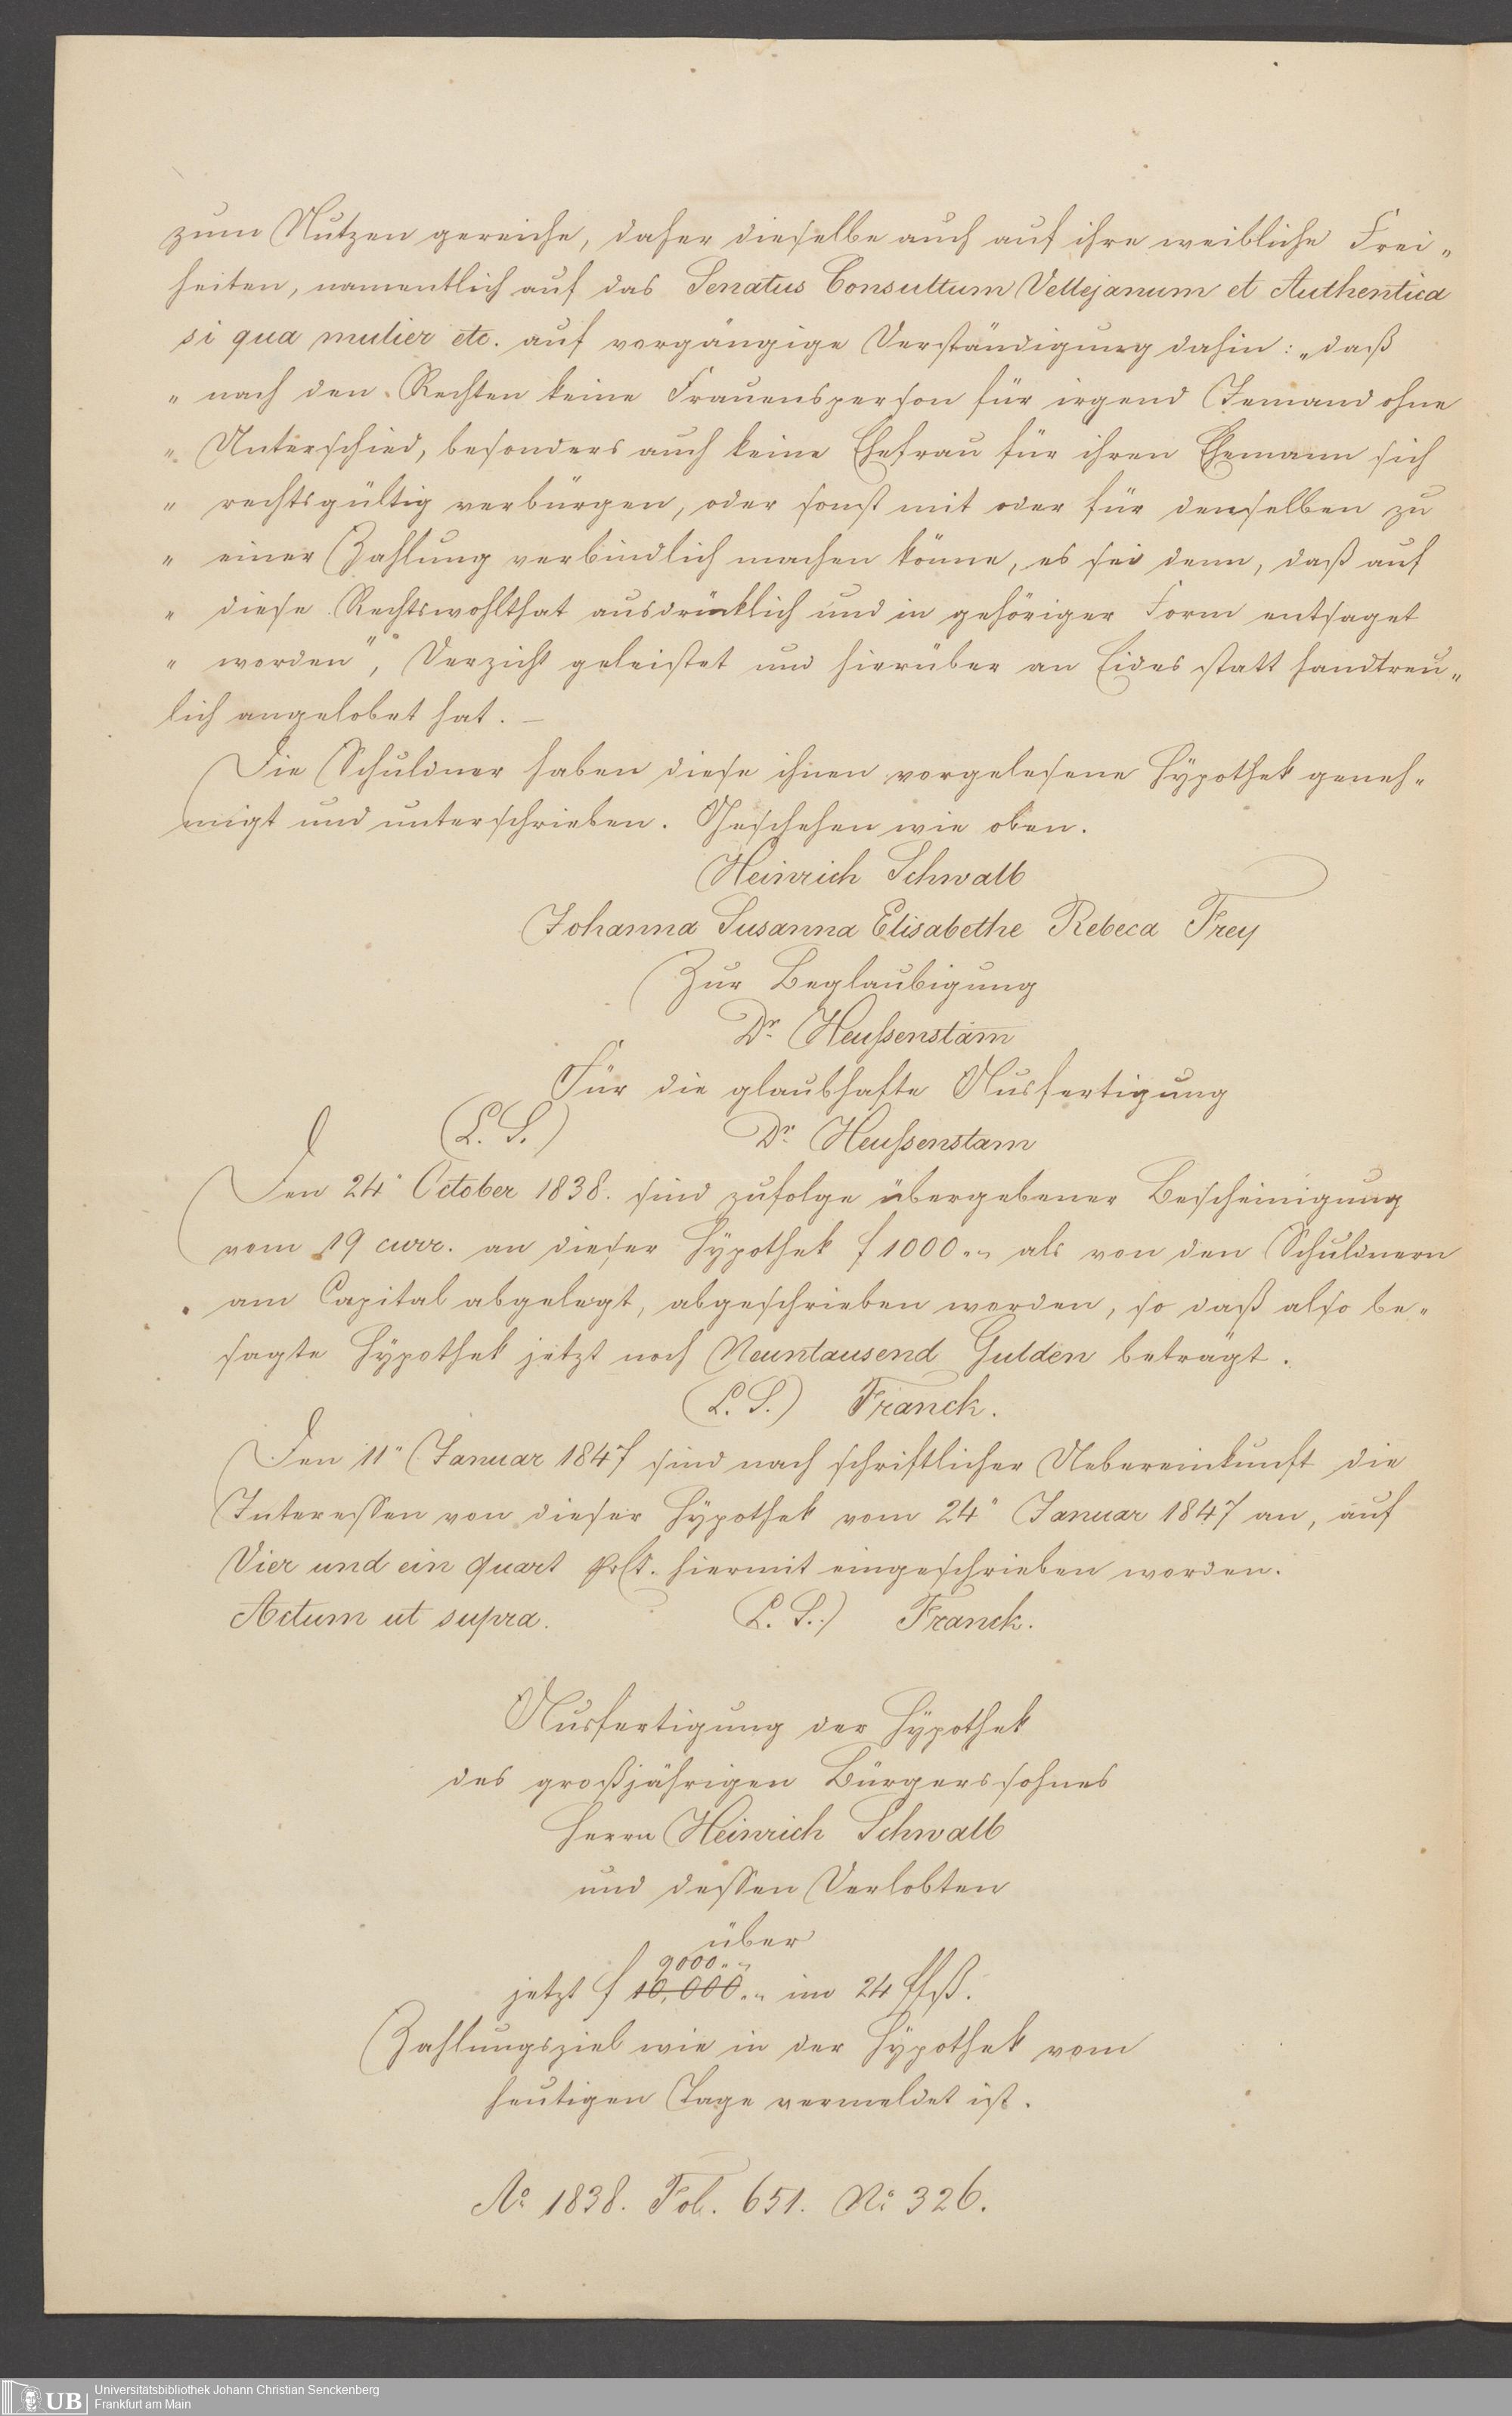 zum Nutzen gereiche, daher dieselbe auch auf ihre weibliche Frei„
heiten, namentlich auf das Senatus Consultum Vellejanum et Authentica
si qua mulier etc. auf vorgängige Verständigung dahin: „daß
„ nach den Rechten keine Frauensperson für irgend Jemand ohne
„ Unterschied, besonders auch keine Ehefrau für ihren Ehemann sich
„ rechtsgültig verbürgen, oder sonst mit oder für denselben zu
„ einer Zahlung verbindlich machen könne, es sei denn, daß auf
„ diese Rechtswohlthat ausdrücklich und in gehöriger Form entsaget
„ worden“, Verzicht geleistet und hierüber an Eides statt handtreu„
lich angelobet hat. –
Die Schuldner haben diese ihnen vorgelesene Hÿpothek geneh-
migt und unterschrieben. Geschehen wie oben.
Heinrich Schwalb
Johanna Susanna Elisabethe Rebeca Frey
Zur Beglaubigung
Dr. Heußenstam̅
Für die glaubhafte Ausfertigung
(L. S.) Dr. Heußenstam
Den 24" October 1838. sind zufolge übergebener Bescheinigung
vom 19 curr. an dieser Hÿpothek f 1000.„ als von den Schuldnern
am Capital abgelegt, abgeschrieben worden, so daß also be-
sagte Hÿpothek jetzt noch Neuntausend Gulden beträgt.
(L. S.) Franck.
Den 11" Januar 1847 sind nach schriftlicher Uebereinkunft die
Interessen von dieser Hÿpothek vom 24" Januar 1847 an, auf
Vier und ein quart hiermit eingeschrieben worden.
Actum ut supra. (L. S.) Franck.
Ausfertigung der Hÿpothek
des großjährigen Bürgerssohnes
Herrn Heinrich Schwalb
und dessen Verlobten
über
9000.„
jetzt f 10,000.„ im 24 ffß.
Zahlungsziel wie in der Hÿpothek vom
heutigen Tage vermeldet ist.
Ao. 1838. Fol. 651. No. 326.
UB Universitätsbibliothek Johann Christian Senckenberg
Frankfurt am Main